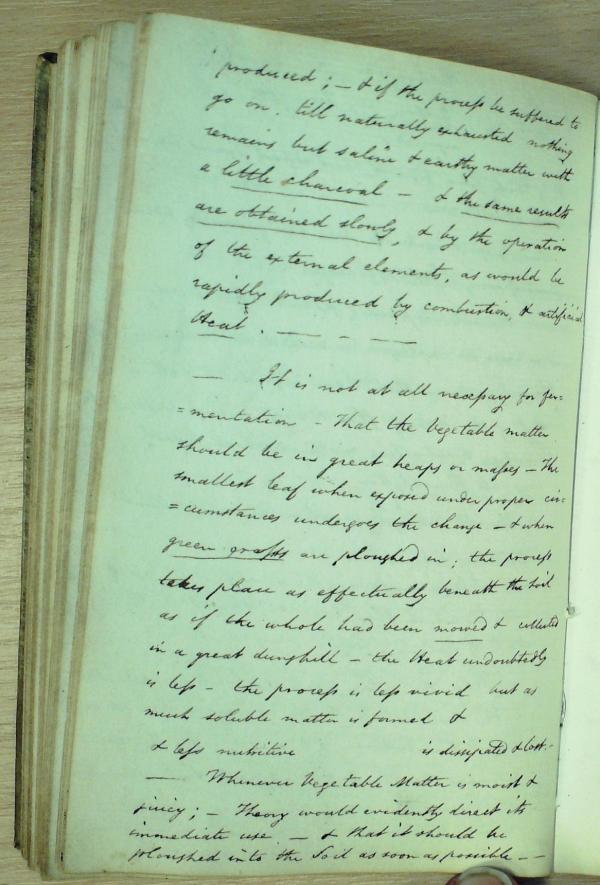 produced; – & if the process be suffered to
go on. till naturally exhausted nothing
remains but saline & earthy matter with
a little charcoal – & the same results
are obtained slowly, & by the operation
of the external elements, as would be
rapidly produced by combustion, & artificial
Heat. — - —
— It is not at all necessary for fer=
=mentation – That the Vegetable matter
should be in great heaps or masses – The
smallest leaf when exposed under proper cir=
=cumstances undergoes the change – & when
green grasses are ploughed in; the process
takes place as effectually beneath the Soil
as if the whole had been mowed & collected
in a great dunghill – the Heat undoubtedly
is less – the process is less vivid but as
much soluble matter is formed &
& less nutritive is dissipated & lost.-
— Whenever Vegetable Matter is moist &
juicy; – Theory would evidently direct its
immediate use – & that it should be
ploughed into the Soil as soon as possible – –